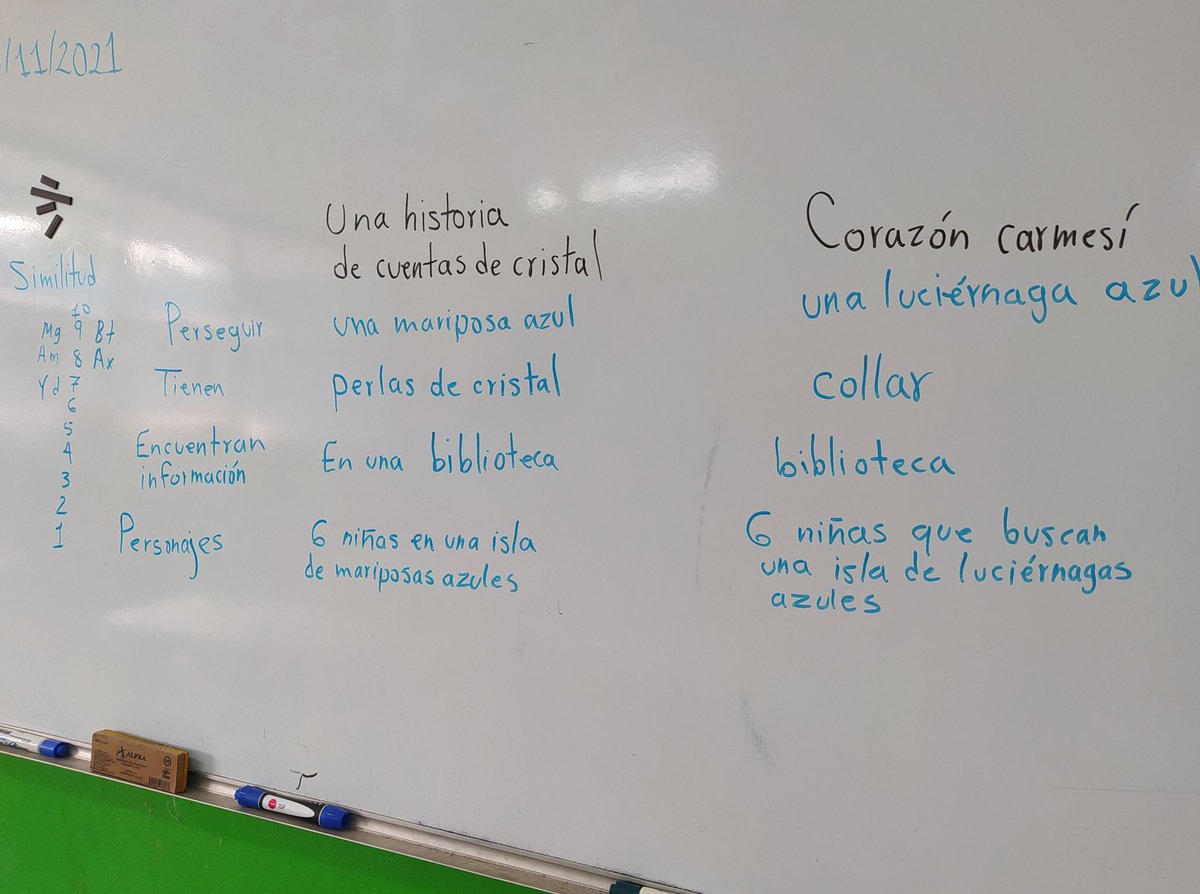 /11/2021
Una historia
de cuentas de cristal
Corazón carmesí
Similitud
10
Mg 9 Bt
Am 8 Ax
Yd 7
6
5
4
3
2
1
Perseguir
una mariposa azul
una luciérnaga azul
Tienen
perlas de cristal
collar
Encuentran
información
En una biblioteca
biblioteca
Personajes
6 niñas en una isla
de mariposas azules
6 niñas que buscan
una isla de luciérnagas
azules
ALFRA